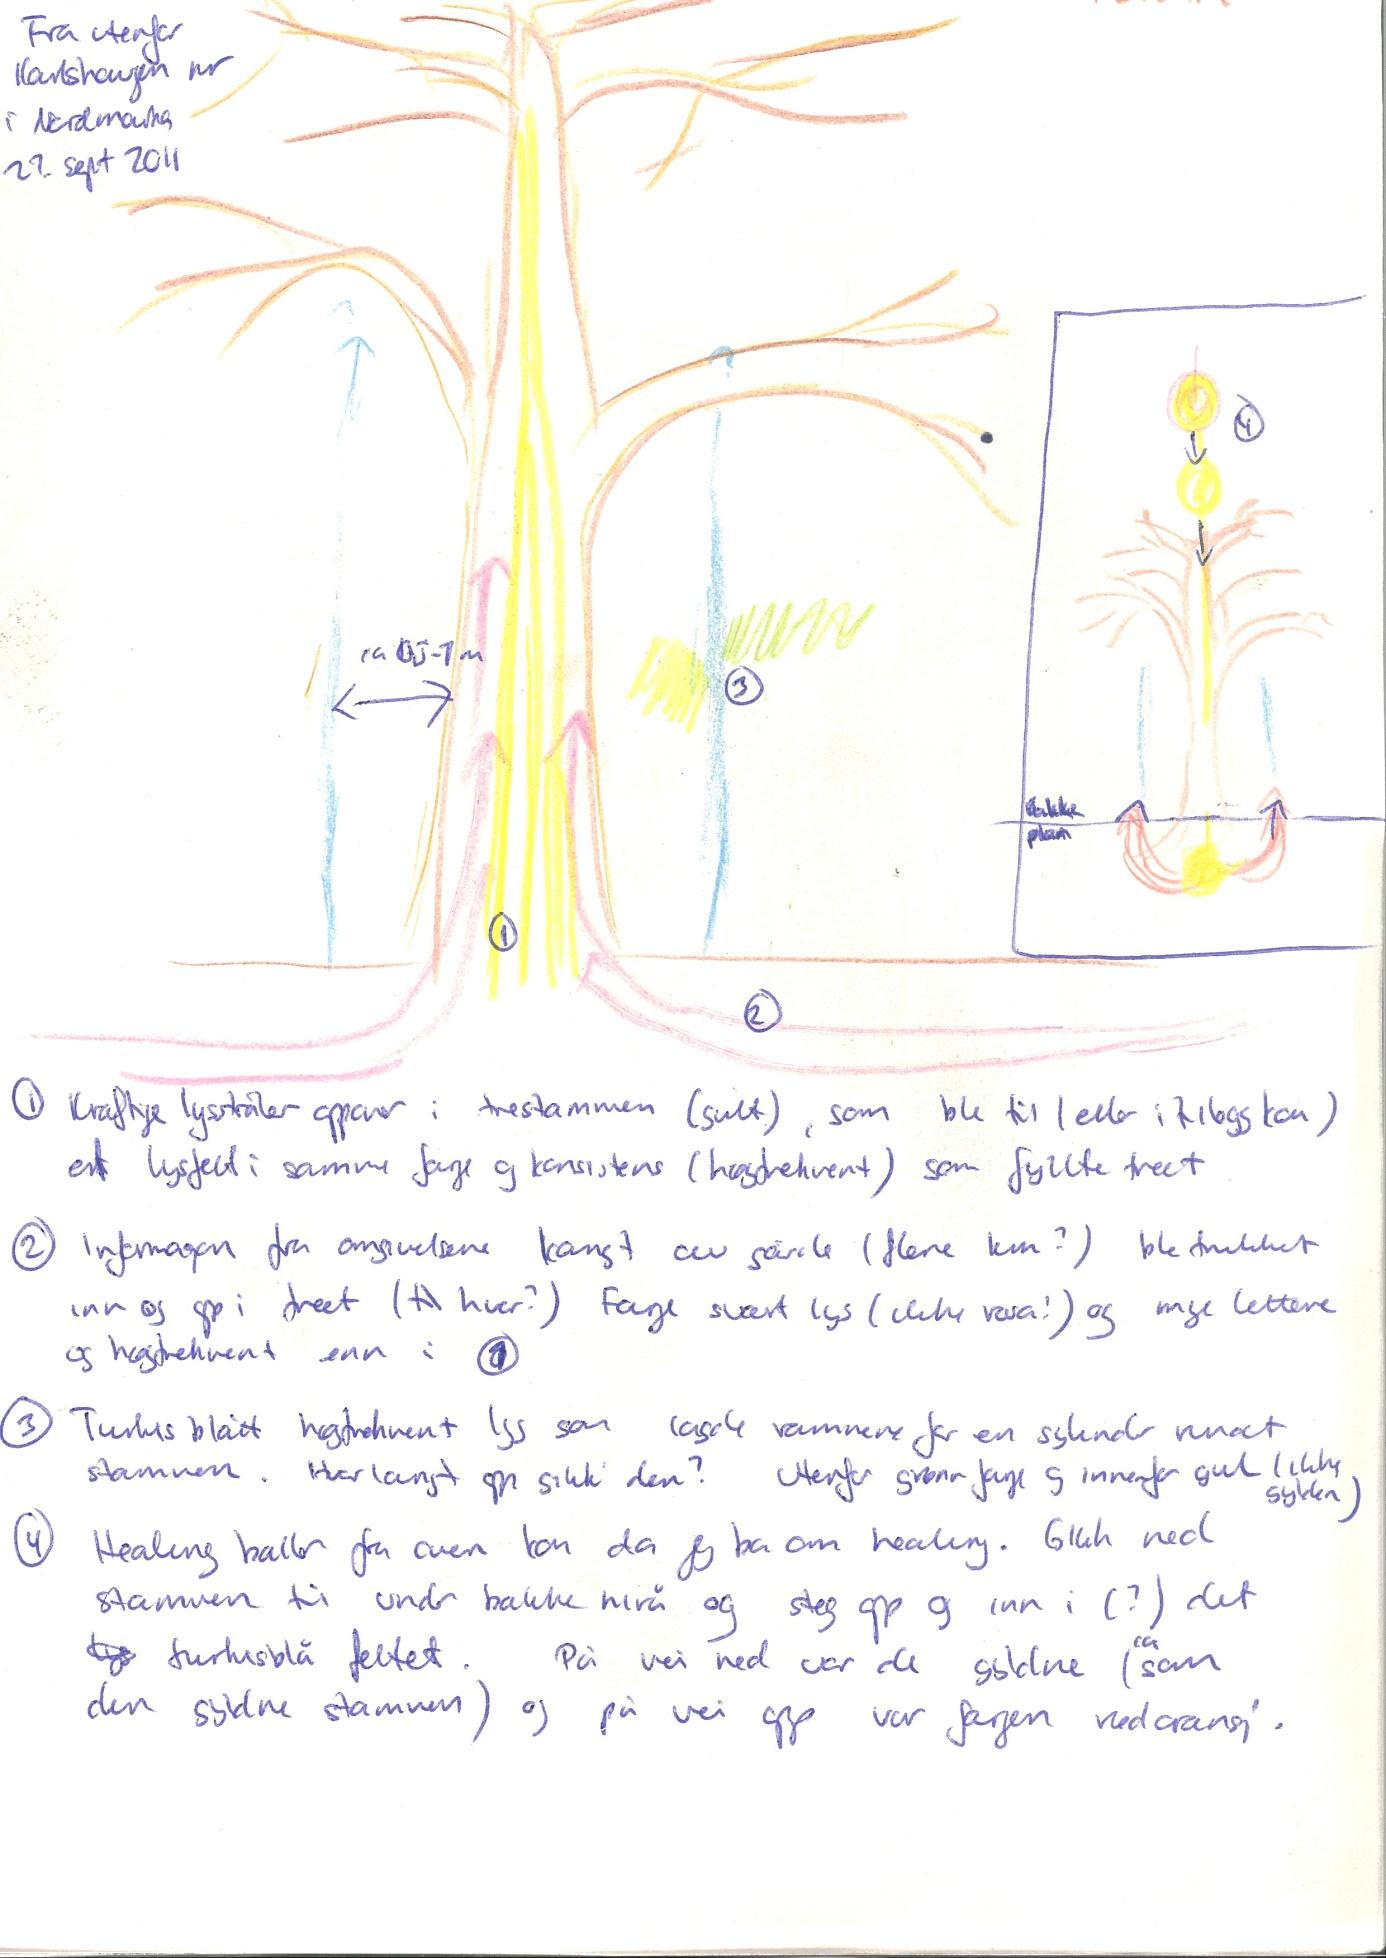 Fra utenfor
Karlshaugen nr
i Nordmarka
27. sept 2011
ca 0,5-1 m
3
4
Bakke
plan
1
2
① Kraftige lysstråler oppover i trestammen (gult), som ble til (eller i tillegg kom)
et lysfelt i samme farge og konsistens (høgfrekvent) som fyllte treet
② Informasjon fra omgivelsene langt av gårde (flere km?) ble trukket
inn og opp i treet (til hvor?) Farge svært lys (ikke rosa!) og mye lettere
og høgfrekvent enn i ①
③ Turkis blått høgfrekvent lys som lagde rammene for en sylinder rundt
stammen. Hvor langt opp gikk den? Utenfor grønn farge og innenfor gul (ikke
gylden)
④ Healing baller fra oven kom da jeg ba om healing. Gikk ned
stammen til under bakke nivå og steg opp og inn i (?) det
turkisblå feltet. På vei ned var de gyldne (ca som
den gyldne stammen) og på vei opp var fargen rødoransj.